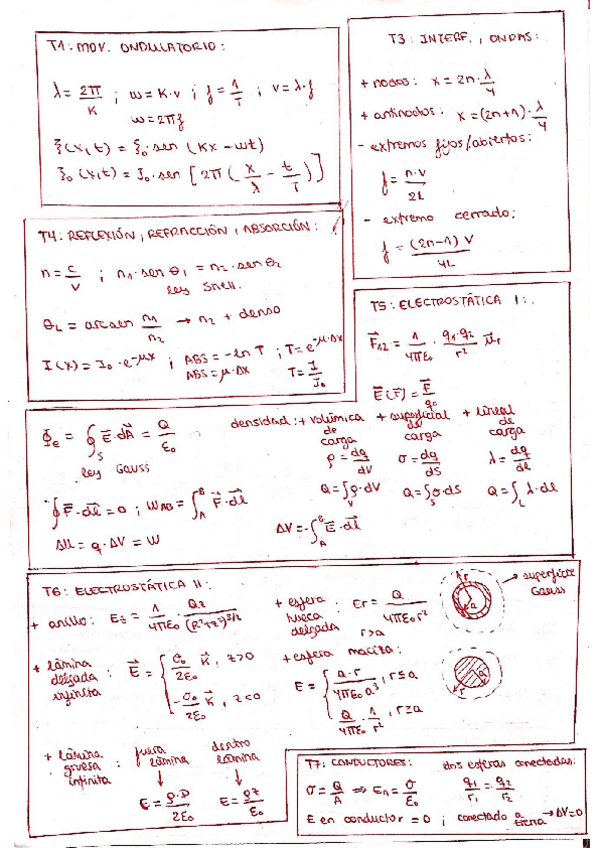 T1: MOV. ONDULATORIO:
λ = 2π/K ; ω = K·v ; f = 1/T ; v = λ·f
ω = 2πf
ξ(x,t) = ξ₀·sen (Kx - ωt)
ξ₀(x,t) = ξ₀·sen [2π (x/λ - t/T)]
T3: INTERF., ONDAS:
+ nodos: x = 2n·λ/4
+ antinodos: x = (2n+1)·λ/4
- extremos fijos/abiertos:
f = n·v/2L
- extremo cerrado:
f = (2n-1) v/4L
T4: REFLEXIÓN, REFRACCIÓN, ABSORCIÓN:
n = c/v ; n₁·sen θ₁ = n₂·sen θ₂
ley Snell.
θL = arcsen n₁/n₂ → n₂ + denso
I(x) = I₀·e^-μx ; ABS = -ln T ; T = e^-μ·Δx
ABS = μ·Δx T = I/I₀
T5: ELECTROSTÁTICA I:
F⃗₁₂ = 1/4πε₀ · q₁·q₂/r² u⃗r
E⃗(r⃗) = F⃗/q₀
ΦE = ∮s E⃗·dA⃗ = Q/ε₀
ley Gauss
densidad: + volúmica de carga + superficial de carga + lineal de carga
ρ = dq/dV σ = dq/dS λ = dq/dl
Q = ∫v ρ·dV Q = ∫s σ·dS Q = ∫L λ·dl
∮F⃗·dl⃗ = 0 ; WAB = ∫A^B F⃗·dl⃗
ΔV = -∫A^B E⃗·dl⃗
ΔU = q·ΔV = W
T6: ELECTROSTÁTICA II:
+ anillo: Ez = 1/4πε₀ · Qz/(R²+z²)^3/2
+ esfera hueca delgada : Er = Q/4πε₀r²
r>a
superficie Gauss
r
a
+ lámina delgada infinita : E⃗ = { σ₀/2ε₀ K⃗, z>0
-σ₀/2ε₀ K⃗, z<0
+ esfera maciza:
E = { Q·r/4πε₀a³, r≤a
Q/4πε₀ · 1/r², r≥a
r
a
+ lámina gruesa infinita : fuera lámina ↓ dentro lámina ↓
E = ρ·D/2ε₀ E = ρz/ε₀
T7: CONDUCTORES: dos esferas conectadas:
σ = Q/A ⇒ En = σ/ε₀ q₁/r₁ = q₂/r₂
E en conductor = 0 ; conectado a tierra → ΔV=0